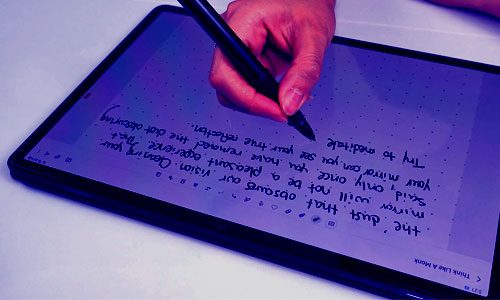 Think Like A Monk
the "dust that obscures our vision. Cleaning your
mirror will not be a pleasant experience. That
Said, only once you have removed the dust obscuring
your mirror can you see your true reflection.
Try to meditate